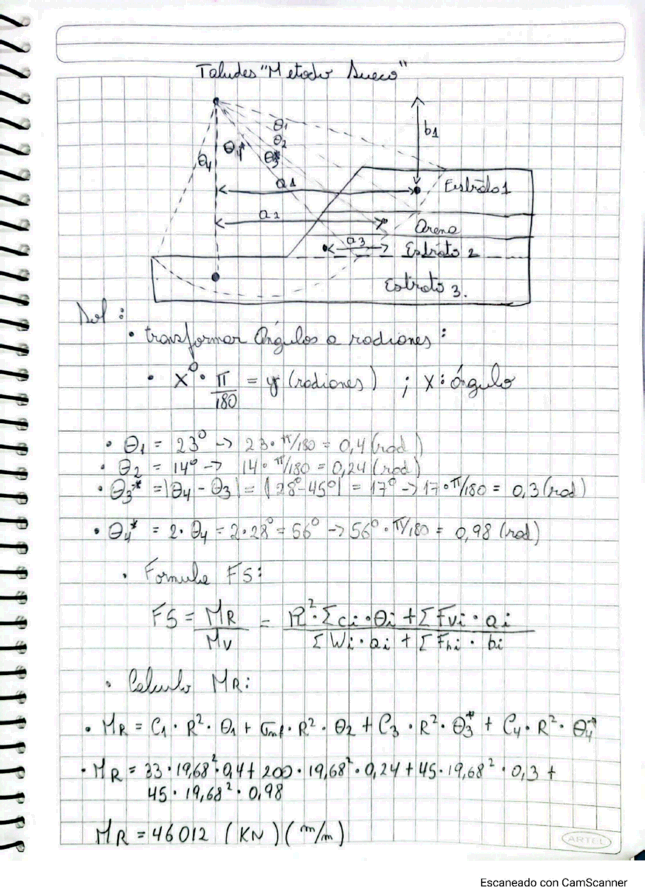 Taludes "Metodo Sueco"
θ1
θ2
θ3*
θ4*
θ4
b1
a1
a2
a3
Estrato 1
Arena
Estrato 2
Estrato 3.
Sol:
• transformar Ángulos a radianes:
• X° • π/180 = y (radianes) ; X: ángulo
• θ1 = 23° → 23 • π/180 = 0,4 (rad)
• θ2 = 14° → 14 • π/180 = 0,24 (rad)
• θ3* = |θ4 - θ3| = |28° - 45°| = 17° → 17 • π/180 = 0,3 (rad)
• θ4* = 2 • θ4 = 2 • 28° = 56° → 56° • π/180 = 0,98 (rad)
• Formula FS:
FS = MR/Mv = R² • Σci • θi + ΣFvi • ai / ΣWi • ai + ΣFhi • bi
• Calculo MR:
• MR = C1 • R² • θ1 + σmf • R² • θ2 + C3 • R² • θ3* + C4 • R² • θ4*
• MR = 33 • 19,68² • 0,4 + 200 • 19,68² • 0,24 + 45 • 19,68² • 0,3 +
45 • 19,68² • 0,98
MR = 46012 (KN) (m/m)
ARTEL
Escaneado con CamScanner